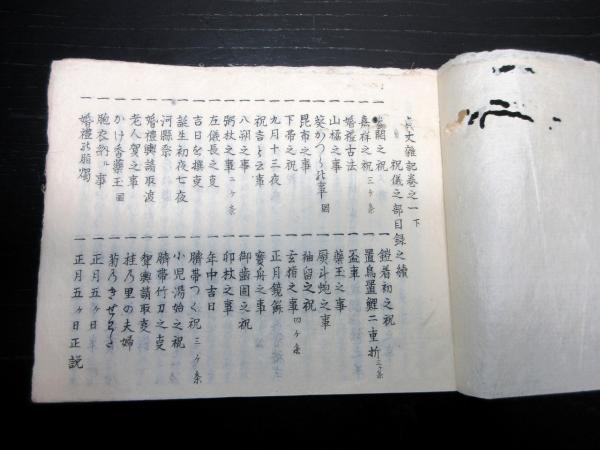 貞丈雑記巻之一下
祝儀之部目録之続
一 鎧着初之祝
一 嘉祥之祝 三ヶ条
一 置鳥置鯉二重折 三ヶ条
一 婚禮古法
一 山橘之事
一 藥玉之事
一 図
一 昆布之事
一 熨斗鮑之事
一 下帯之祝
一 袖留之祝
一 九月十三夜
一 玄猪之事 四ヶ条
一 正月鏡餅
一 八朔之事
一 寳舟之事
一 粥杖之事 二ヶ条
一 御歯固之祝
一 左儀長之支
一 卯杖之事
一 吉日を撰支
一 年中吉日
一 誕生初夜七夜
一 臍帯つく祝 三ヶ条
一 河縣祭
一 小児湯始之祝
一 婚禮輿請取渡
一 臍帯竹刀之支
一 老人賀之事
一 聟輿請取支
一 かけ香藥玉 図
一 桂乃里の夫婦
一 胞衣納ル事
一 菊乃きせわた
一 婚禮の脂燭
一 正月五ヶ日
一 正月五ヶ日正説